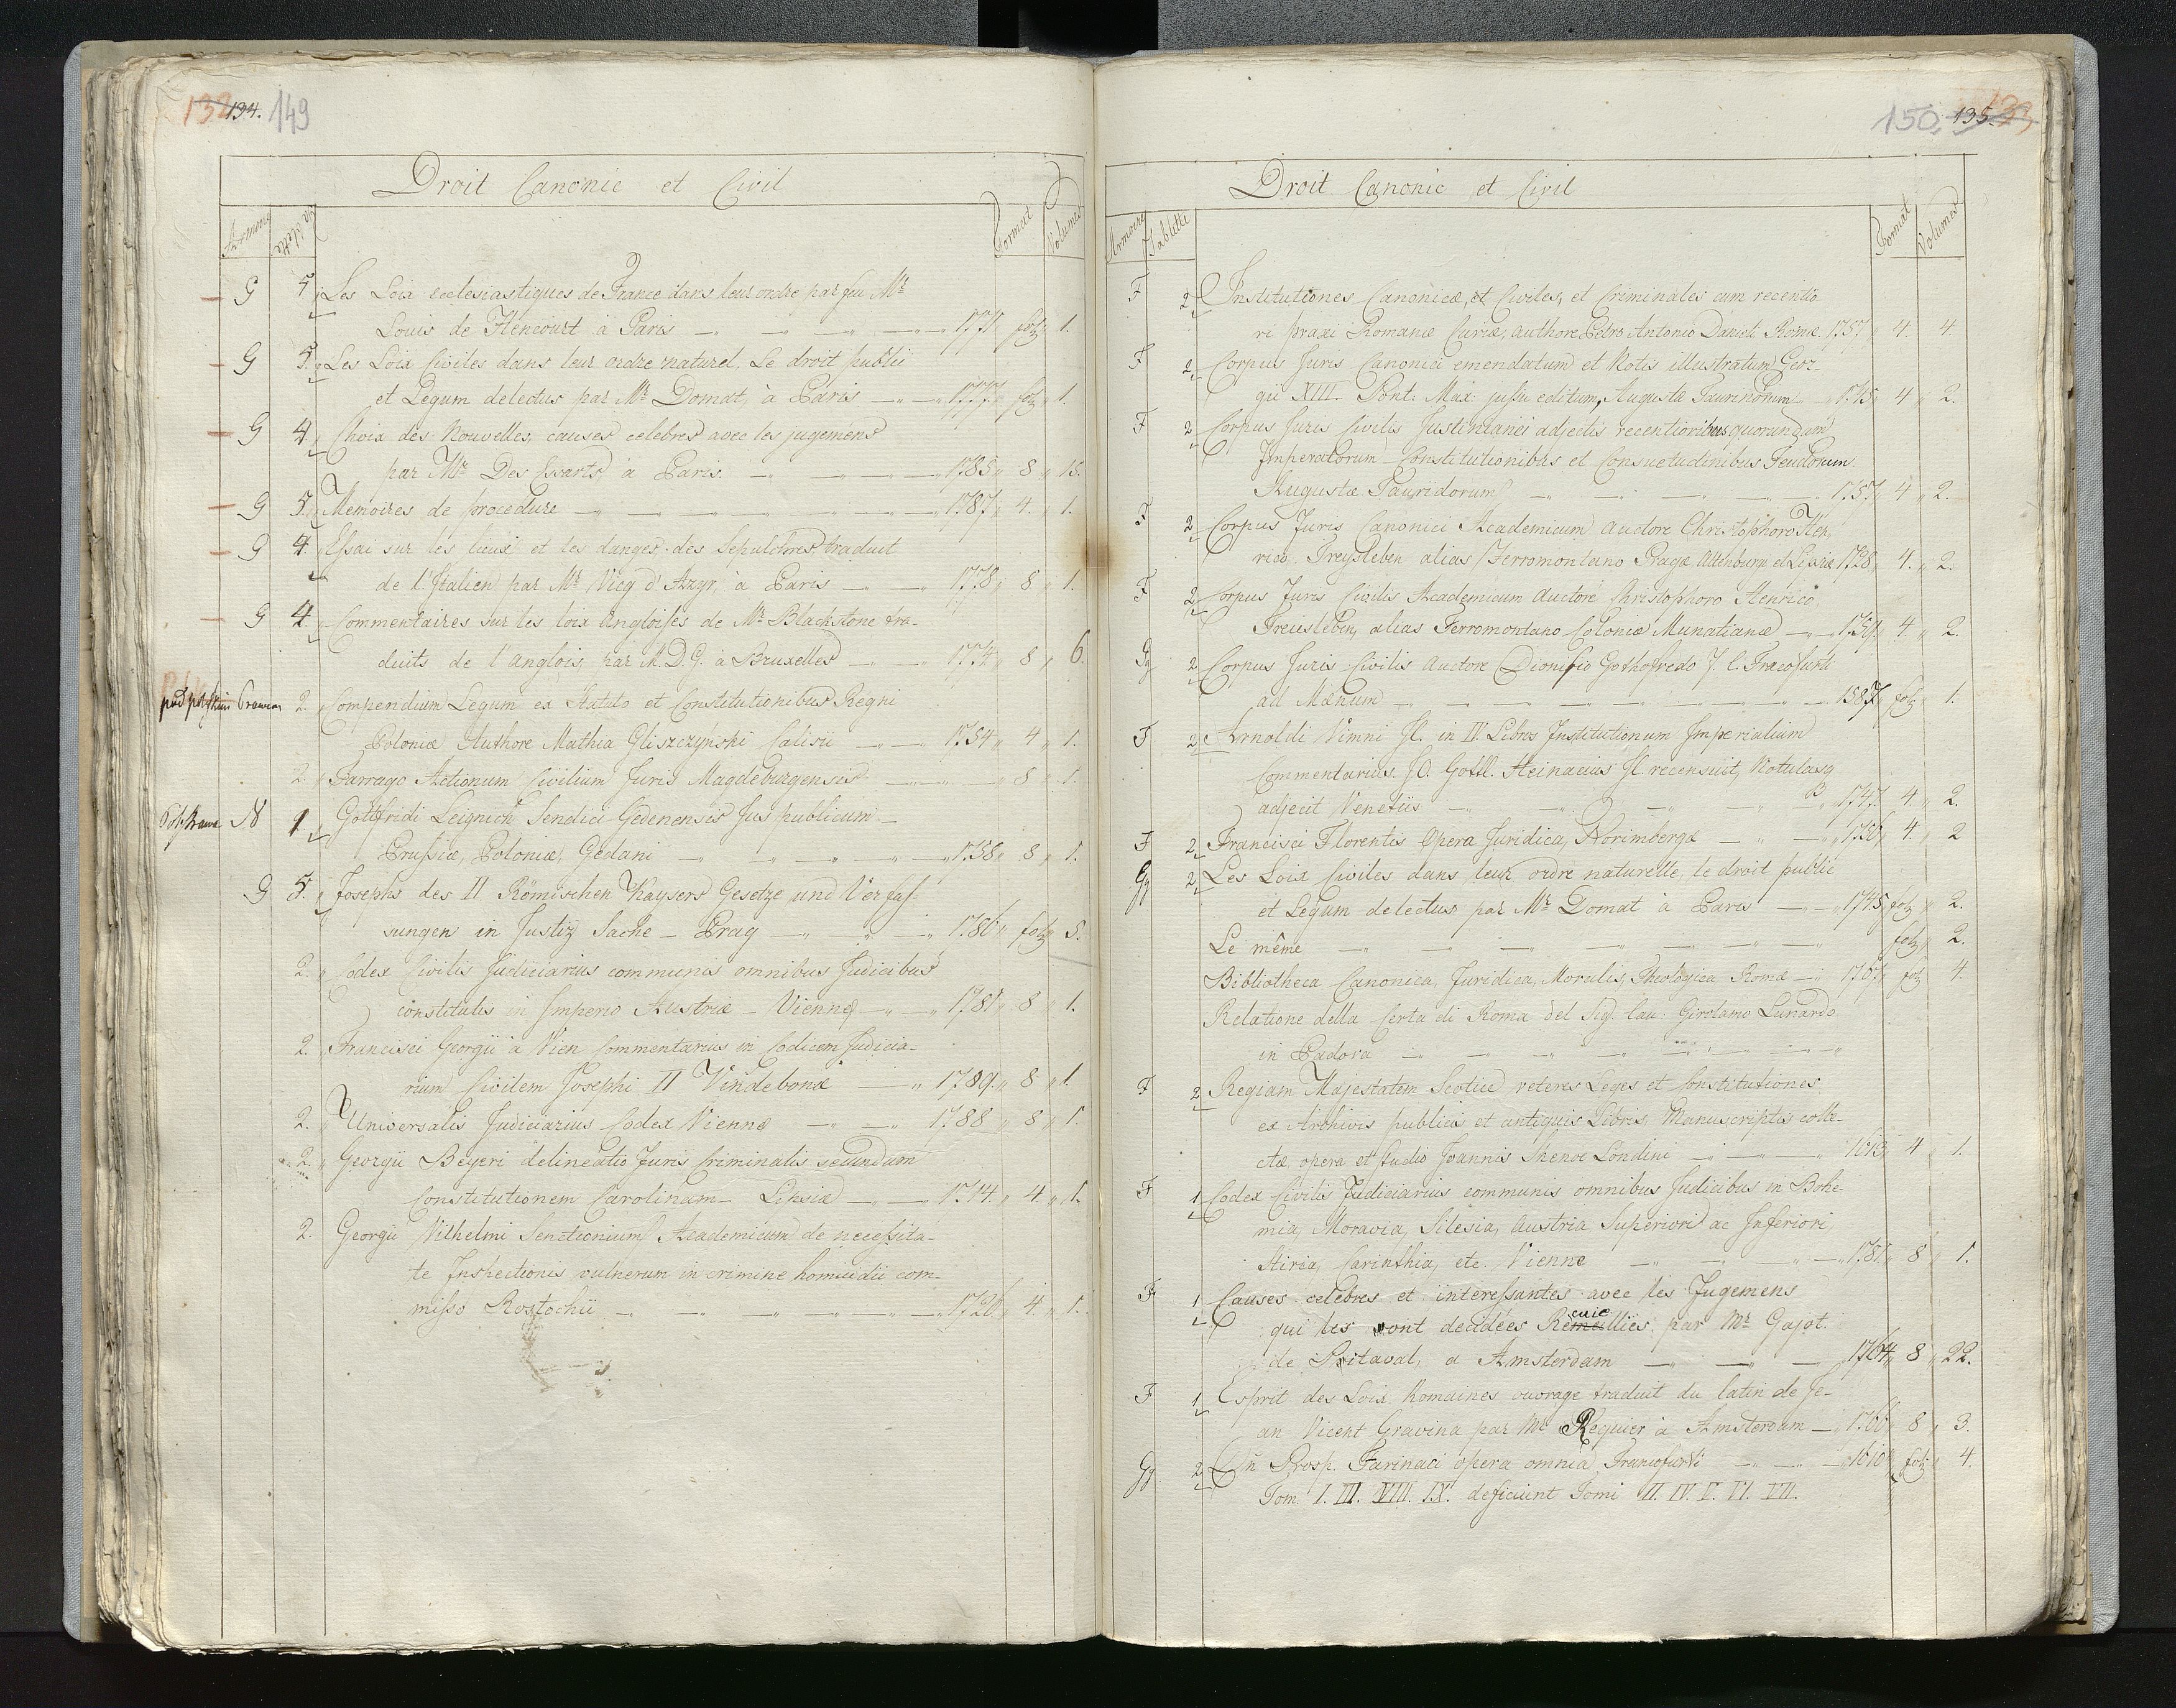 132 134. 149
Droit Canonic et Civil
Armoire Tablette Format Volumes
G 5 Les Loix ecclesiastiques de France dans leur ordre par feu Mr
Louis de Hencourt à Paris 1771 folj 1.
G 5. Les Loix Civiles dans leur ordre naturel. Le droit public
et Legum delectus par Mr Domat, à Paris 1777 folj 1.
G 4. Choix des Nouvelles causes celebres avec les jugemens
par Mr Des Essarts à Paris 1785 8 15.
G 5. Memoires de procedure 1787 4. 1.
G 4. Essai sur les lieux et les danges des Sepulchres traduit
de l'Italien par Mr Vicq d'Azyr, à Paris 1778 8 1.
G 4. Commentaires sur les loix Angloises de Mr Blackstone tra-
duits de l'anglois, par M. D. G. à Bruxelles 1774 8 6.
2. Compendium Legum ex Statuto et Constitutionibus Regni
Poloniæ Authore Mathia Gliszczyński Calisii 1754 4 1.
2. Farrago Actionum Civilium Juris Magdeburgensis 8 1.
N 1 Gottfridi Leignich Sendici Gedenensis Jus publicum
Prussiæ, Poloniæ, Gedani 1758 8 1.
G 5. Josephs des II Römischen Kaysers Gesetze und Verfas-
sungen in Justiz Sache - Prag 1786 folj 5.
2. Codex Civilis Judiciarius communis omnibus Judicibus
constitutis in Imperio Austriæ - Viennæ 1781 8 1.
2. Francisci Georgii à Vien Commentarius in Codicem Judicia-
rium Civilem Josephi II Vindebonæ 1789. 8 1.
2. Universalis Judiciarius Codex Viennæ 1788 8 1.
2. Georgii Beyeri delineatio Juris Criminalis secundum
Constitutionem Carolinam Lipsiæ 1714. 4 1.
2. Georgii Vilhelmi Senctionium Academicum de necessita-
te Inspectionis vulnerum in crimine homicidii com-
misso Rostochii 1726 4. 1.
150. 135.
Droit Canonic et Civil
Armoire Tablette Format Volumes
F 2 Institutiones Canonicæ, et Civiles, et Criminales cum recentio
ri praxi Romanæ Curiæ, authore Petro Antonio Danieli Romæ 1757 4. 4.
F 2 Corpus Juris Canonici emendatum et Notis illustratum Geor-
gii XIII. Pont: Max: jussu editum, Augustæ Taurinorum 1745 4 2.
F 2 Corpus Juris Civilis Justinianei adjectis recentioribus quorundam
Imperatorum Constitutionibus et Consuetudinibus Feudorum
Augustæ Tauridorum 1757 4 2.
F 2 Corpus Juris Canonici Academicum auctore Christophoro Hen
rico Freysleben alias Ferromontano Pragæ Altenburgæ et Lipsiæ 1728 4. 2.
F 2 Corpus Juris Civilis Academicum auctore Christophoro Henrico
Freiesleben, alias Ferromontano Coloniæ Munatianæ 1759 4 2.
Gg 2 Corpus Juris Civilis auctore Dionisio Gothofredo J. C. Fracofurti
ad Mœnum 1587 folj 1.
F 2 Arnoldi Vinni Jl. in IV. Libros Institutionum Imperialium
Commentarius. JO. Gottl. Heinacius Jl. recensuit, Notulasq
adjecit Venetiis 1747 4 2.
F 2 Francisci Florentis Opera Juridica, Norimbergæ 1756 4 2
Gg 2 Les Loix Civiles dans leur ordre naturelle, le droit public
et Legum delectus par Mr Domat à Paris 1745 folj 2.
Le même folj 2.
Bibliotheca Canonica, Juridica, Moralis, Theologica Romæ 1767 folj 4.
Relatione della Certa di Roma del Sig. Cau: Girolamo Lunardo
in Padova
F 2 Regiam Majestatem Scotiæ veteres Leges et Constitutiones
ex Archivis publicis et antiquis Libris Manuscriptis colle-
ctæ, opera et studio Joannis Skenæi Londini 1613 4 1.
F 1 Codex Civilis Judiciarius communis omnibus Judicibus in Bohe-
mia, Moravia, Silesia, Austria Superiori ac Inferiori,
Stiria, Carinthia, etc. Vienne 1781 8 1.
F 1 Causes celebres et interessantes avec les Jugemens
qui les ont decidées Recueillies par Mr Gajot.
de Pitaval, a Amsterdam 1764 8 22.
F 1 Esprit des Loix Romaines ouvrage traduit du latin de Je-
an Vicent Gravina par Mr Requier à Amsterdam 1766 8 3.
Gg 2 Prosp. Farinaci opera omnia Francofurti 1610 folj 4.
Tom. I. III. VIII. IX. deficiunt Tomi II. IV. V. VI. VII.